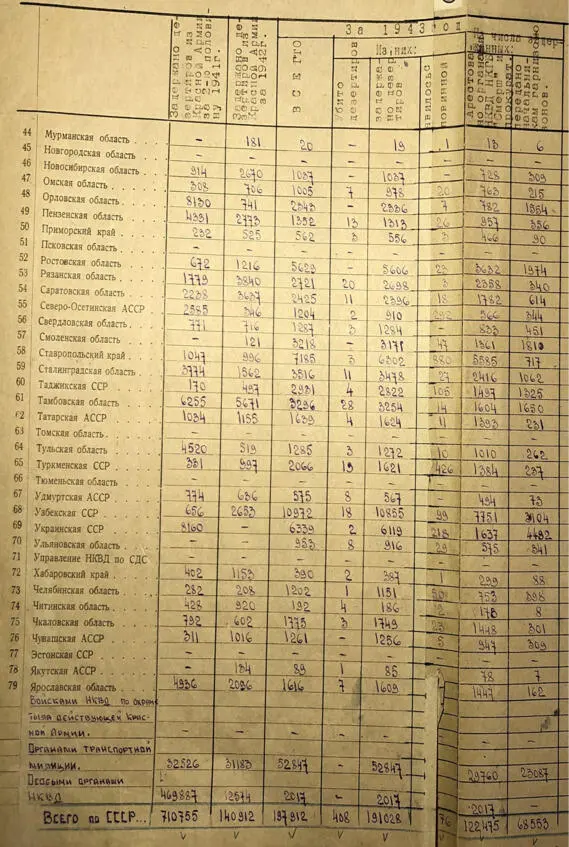 За 1943 год
Задержано дезертиров из Красной Армии за 2-ю половину 1941г.
Задержано дезертиров из Красной Армии за 1942г.
ВСЕГО
Из них:
дезертиров
Из числа задержанных:
44 Мурманская область . . - 181 20 - 19 1 13 6
45 Новгородская область - - - - - - - -
46 Новосибирская область . 914 2670 1037 - 1037 - 728 309
47 Омская область . . . 308 706 1005 7 978 20 763 215
48 Орловская область . . . 8130 741 2343 - 2336 7 782 1554
49 Пензенская область 4331 2773 1352 13 1313 26 957 356
50 Приморский край . . . 232 525 562 3 556 3 466 90
51 Псковская область - - - - - - - -
52 Ростовская область . . . 672 1216 5629 - 5606 23 3632 1974
53 Рязанская область . . . 1779 3840 2721 20 2698 3 2358 340
54 Саратовская область . . . 2238 3637 2425 11 2396 18 1782 614
55 Северо-Осетинская АССР 2585 346 1204 2 910 292 566 344
56 Свердловская область . 771 716 1287 3 1284 - 833 451
57 Смоленская область - 121 3218 - 3171 47 1361 1810
58 Ставропольский край . . 1047 996 7185 3 6302 880 5585 717
59 Сталинградская область . 3774 1362 3816 11 3478 27 2416 1062
60 Таджикская ССР . . . 170 497 2931 4 2822 105 1497 1325
61 Тамбовская область . . . 6255 5671 3296 28 3254 14 1604 1650
62 Татарская АССР . . . 1034 1155 1639 4 1624 11 1393 231
63 Томская область . . . - - - - - - - -
64 Тульская область . . . 4520 519 1285 3 1272 10 1010 262
65 Туркменская ССР . . . 331 997 2066 19 1621 426 1384 237
66 Тюменьская область - - - - - - - -
67 Удмуртская АССР . . . 774 636 575 8 567 - 494 73
68 Узбекская ССР . . . 656 2653 10972 18 10855 99 7751 3104
69 Украинская ССР . . . 8160 - 6339 2 6119 218 1637 4482
70 Ульяновская область . . - - 953 8 916 29 575 341
71 Управление НКВД по СДС - - - - - - - -
72 Хабаровский край . . . 402 1153 390 2 387 1 299 88
73 Челябинская область . . 282 208 1202 1 1151 50 753 398
74 Читинская область . . . 428 920 192 4 186 2 178 8
75 Чкаловская область . . . 792 602 1775 3 1749 23 1448 301
76 Чувашская АССР . . . 311 1016 1261 - 1256 5 947 309
77 Эстонская ССР - - - - - - - -
78 Якутская АССР . . . - 134 89 1 85 78 7
79 Ярославская область . . 4936 2096 1616 7 1609 - 1447 162
Войсками НКВД по охране
тыла действующей Крас-
ной Армии. - - - - - - - -
Органами транспортной
милиции. 32526 31183 52847 - 52847 - 29760 23087
Особыми органами
НКВД 469887 12574 2017 - 2017 - 2017 -
Всего по СССР... 710755 140912 197912 408 191028 76 122475 68553